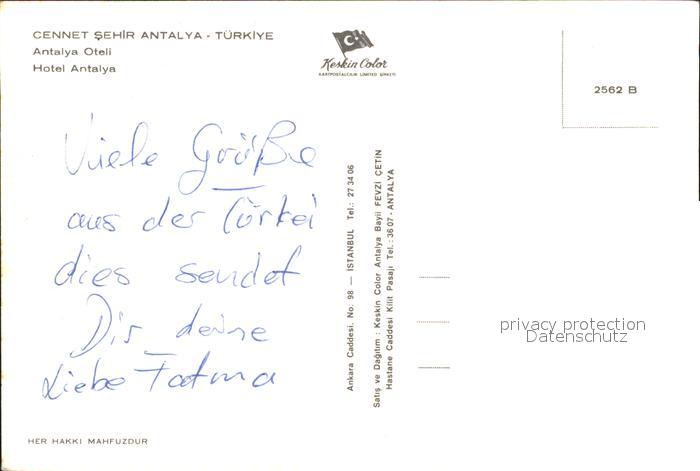 CENNET ŞEHİR ANTALYA - TÜRKİYE
Antalya Oteli
Hotel Antalya
Keskin Color
KARTPOSTALCILIK LİMİTED ŞİRKETİ
2562 B
Viele Grüße
aus der Türkei
dies sendet
Dir deine
Liebe Fatma
Ankara Caddesi. No. 98 — İSTANBUL Tel.: 27 34 06
Satış ve Dağıtım : Keskin Color Antalya Bayii FEVZİ ÇETİN
Hastane Caddesi Kilit Pasajı Tel.: 3607 - ANTALYA
privacy protection
Datenschutz
HER HAKKI MAHFUZDUR